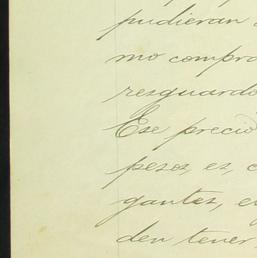 pudieran
mo compra
resguardo
Ese precio
pesos, es,
gantes, en
den tener,